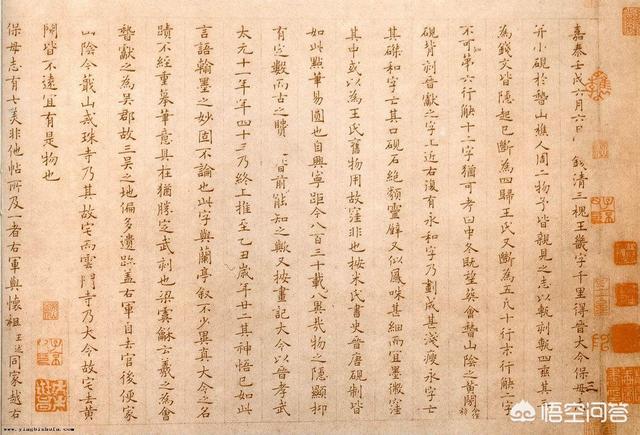 嘉泰壬戌六月六日錢清三槐王畿字千里得晉大令保母
并小硯於稽山樵人周二物予皆親見之志以甎刻甎四垂其三
為錢文皆隱起已斷為四歸王氏又斷為五凡十行末行缺二字
不可知第六行缺十一字猶可考曰中冬既望葬會稽山陰之黃閍
硯背刻晉獻之字上近右復有永和字乃劃成甚淺瘦永字亡
其磔和字亡其口硯石絕類靈壁又似鳳咮甚細而宜墨微窪
其中或以為王氏舊物用故窪非也按米氏書史晉唐硯制皆
如此點筆易圓也自興寧距今八百三十載八異哉物之隱顯抑
有定數而古之賢皆前能知之歟又按畫記大令以晉孝武
太元十一年年四十三乃終上推至乙丑歲年廿二其神悟已如此
言語翰墨之妙固不論也此字與蘭亭敘不少異真大令之名
蹟不經重摹筆意具在猶勝定武刻也梁虞龢云羲之為會
稽獻之為吳郡故三吳之地偏多遺跡蓋右軍自去官後便家
山陰今蕺山戒珠寺乃其故宅而雲門寺乃大令故宅去黃
閍皆不遠宜有是物也
保母志有七美非他帖所及一者右軍與懷祖王述同家越右
www.yingbishufa.com
悟空问答